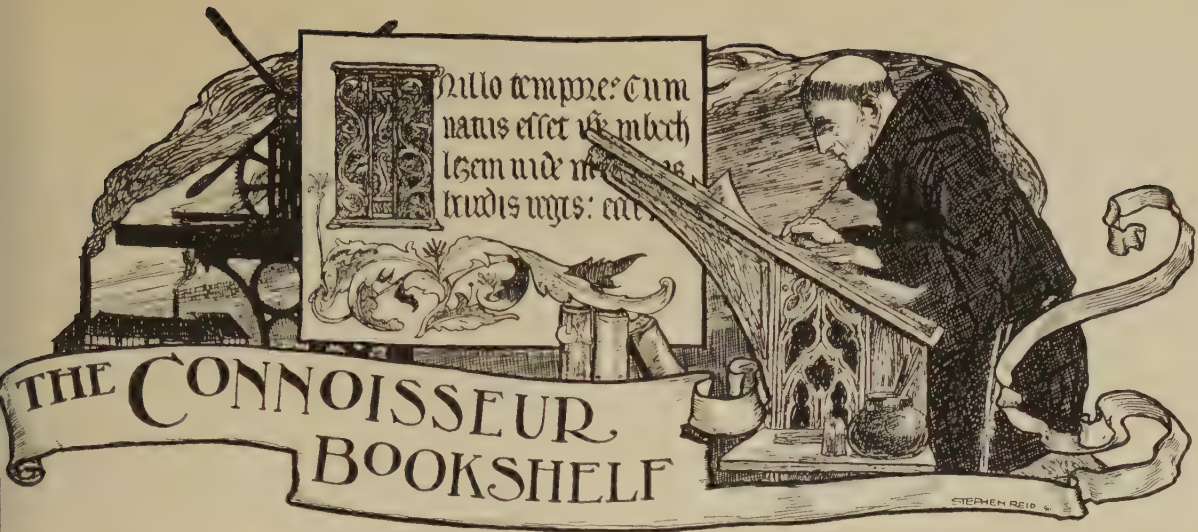 INillo tempore: Cum
natus esset inbech
lezem iude
herodis regis:
THE CONNOISSEUR
BOOKSHELF
STEPHEN REID